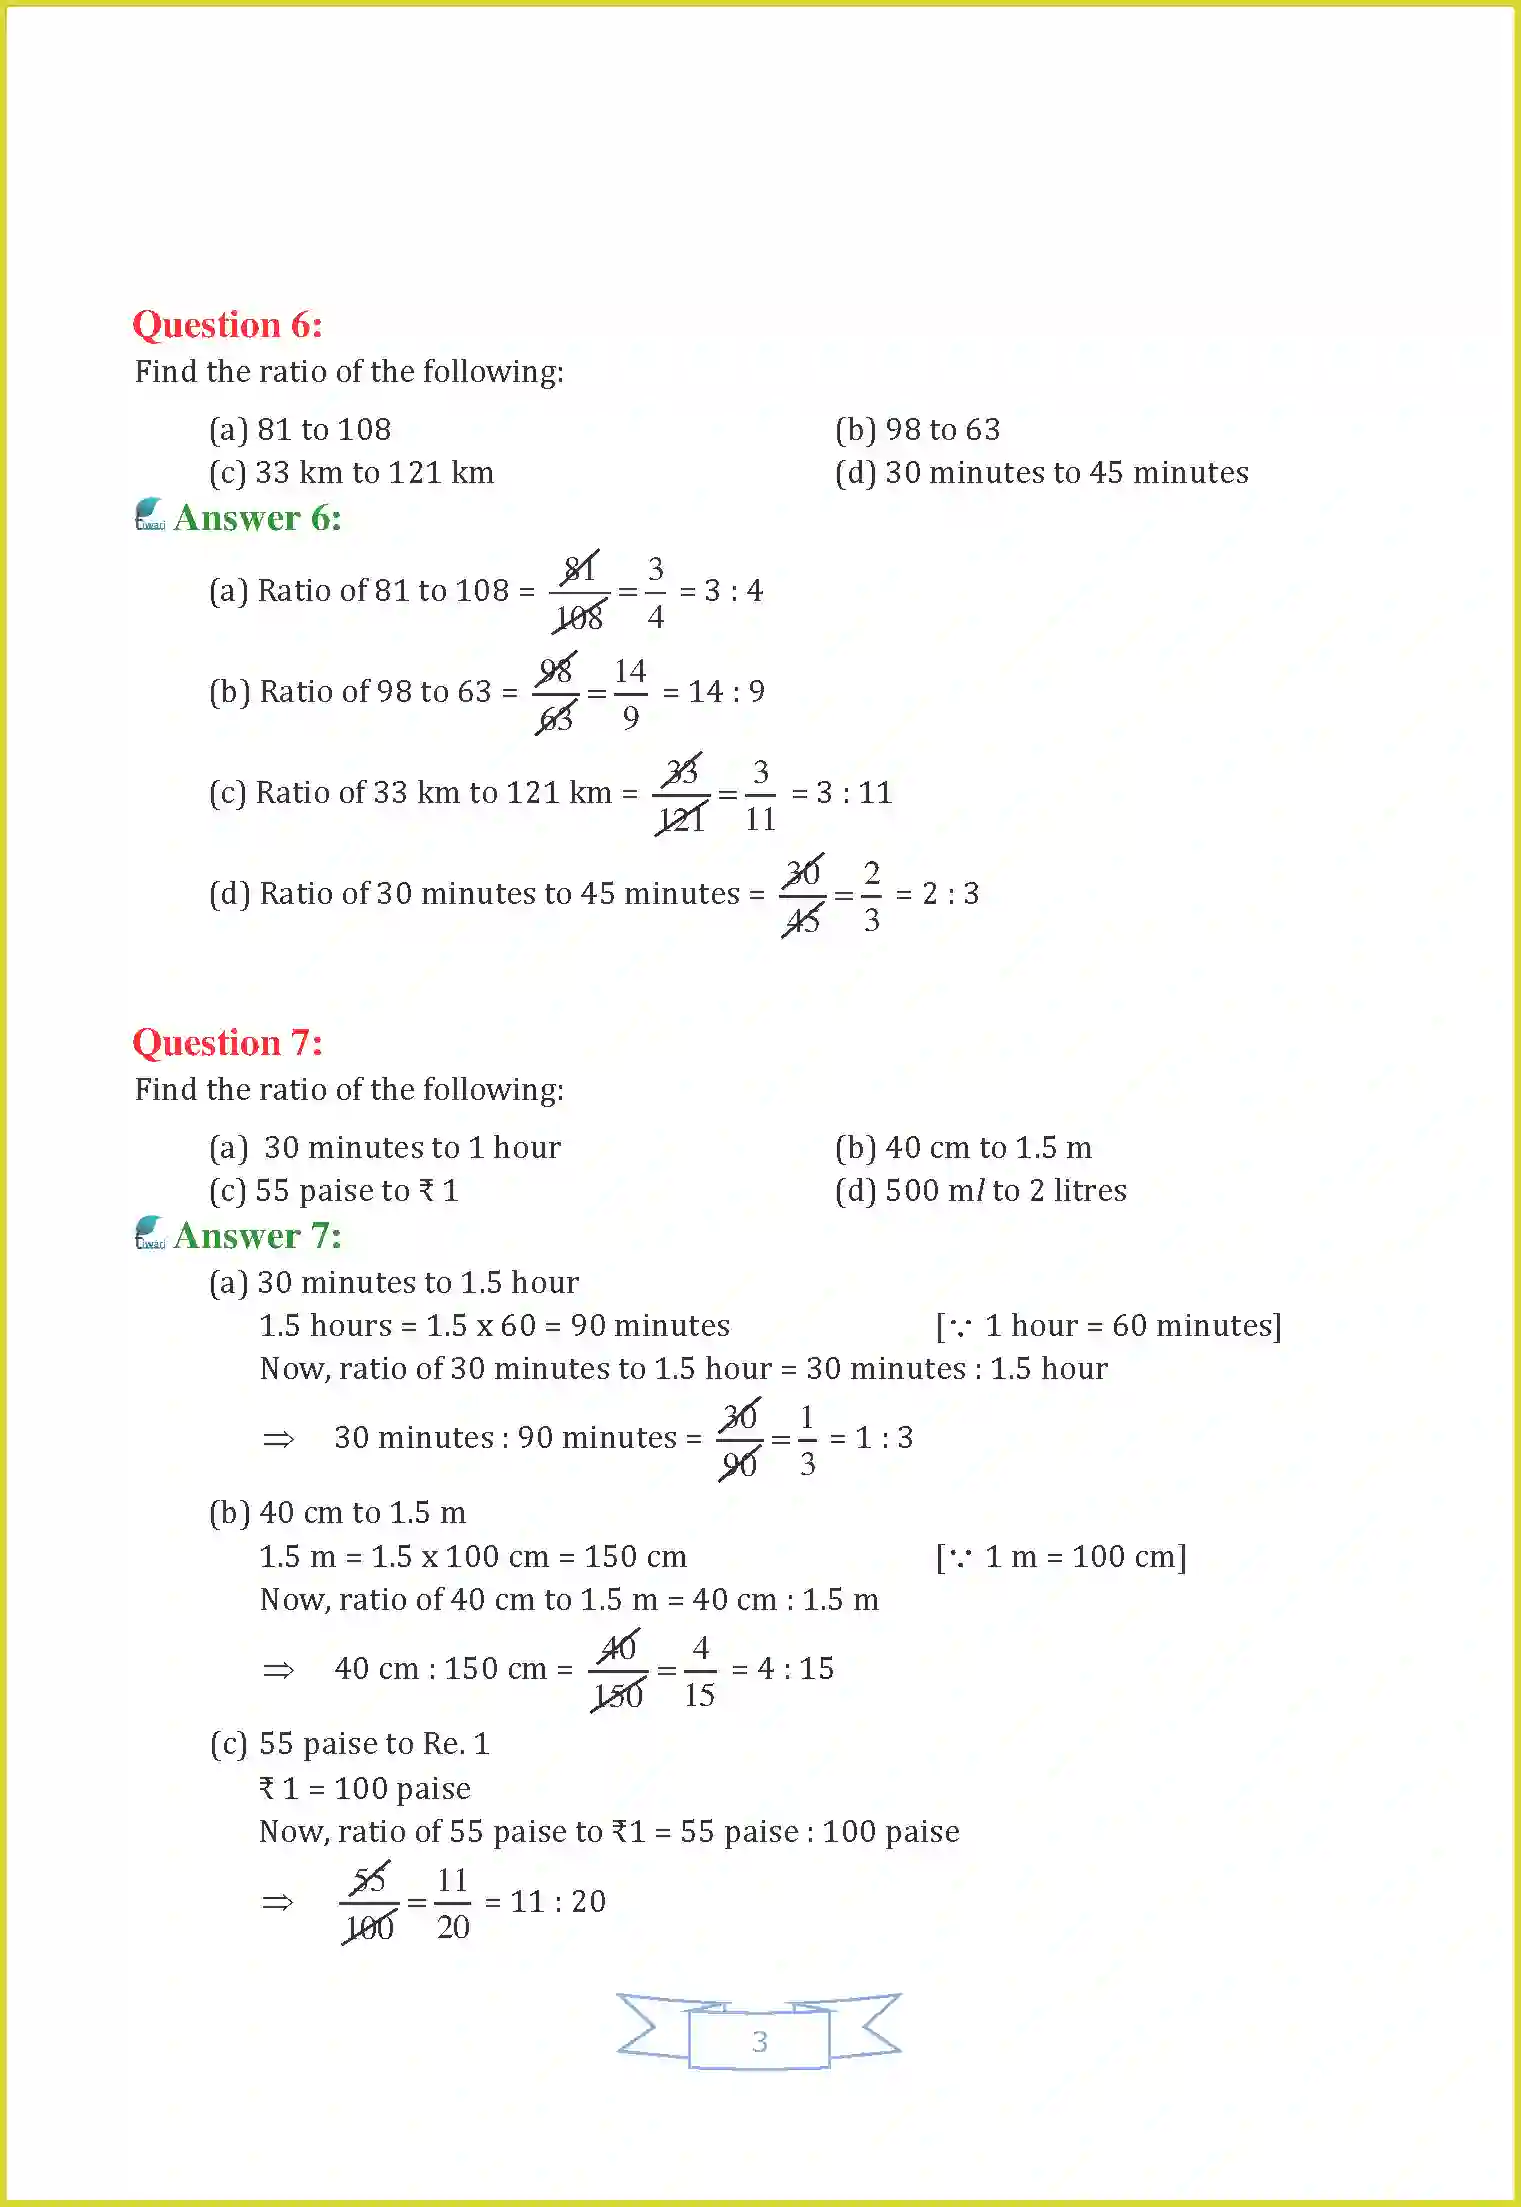 Question 6:
Find the ratio of the following:
(a) 81 to 108 (b) 98 to 63
(c) 33 km to 121 km (d) 30 minutes to 45 minutes
Tiwari Answer 6:
(a) Ratio of 81 to 108 = 81/108 = 3/4 = 3 : 4
(b) Ratio of 98 to 63 = 98/63 = 14/9 = 14 : 9
(c) Ratio of 33 km to 121 km = 33/121 = 3/11 = 3 : 11
(d) Ratio of 30 minutes to 45 minutes = 30/45 = 2/3 = 2 : 3
Question 7:
Find the ratio of the following:
(a) 30 minutes to 1 hour (b) 40 cm to 1.5 m
(c) 55 paise to ₹ 1 (d) 500 ml to 2 litres
Tiwari Answer 7:
(a) 30 minutes to 1.5 hour
1.5 hours = 1.5 x 60 = 90 minutes [∵ 1 hour = 60 minutes]
Now, ratio of 30 minutes to 1.5 hour = 30 minutes : 1.5 hour
⇒ 30 minutes : 90 minutes = 30/90 = 1/3 = 1 : 3
(b) 40 cm to 1.5 m
1.5 m = 1.5 x 100 cm = 150 cm [∵ 1 m = 100 cm]
Now, ratio of 40 cm to 1.5 m = 40 cm : 1.5 m
⇒ 40 cm : 150 cm = 40/150 = 4/15 = 4 : 15
(c) 55 paise to Re. 1
₹ 1 = 100 paise
Now, ratio of 55 paise to ₹1 = 55 paise : 100 paise
⇒ 55/100 = 11/20 = 11 : 20
3